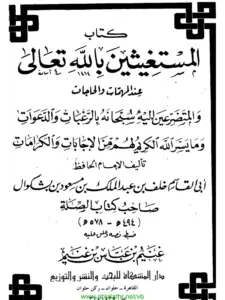 كتاب
المستغيثين بالله تعالى
عند المهمات والحاجات
والمتضرعين إليه سبحانه بالرغبات والدعوات
وما يسر الله الكريم لهم من الإجابات والكرامات
تأليف الإمام الحافظ
أبي القاسم خلف بن عبد الملك بن مسعود بن بشكوال
صاحب كتاب الصلة
٤٩٤هـ - ٥٧٨هـ
غنيم بن عباس بن غنيم
دار المشكاة للبحث والنشر والتوزيع
القاهرة - حلوان - ركن حلوان